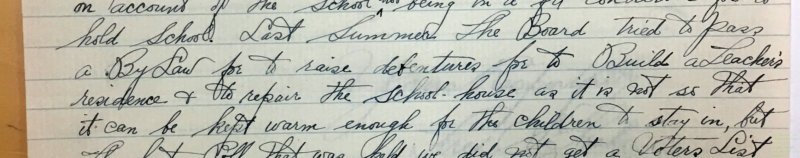 on account of the School not being in a fit condit
hold School. Last Summer The Board tried to pass
a By Law for to raise debentures for to Build a Teacher's
residence & to repair the School-house as it is not so that
it can be kept warm enough for the children to stay in, but
that was held we did not get a Voters List